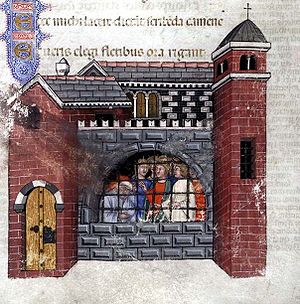 michi lacere dictãt scribẽda camene
ueris elegi fletibus ora rigant